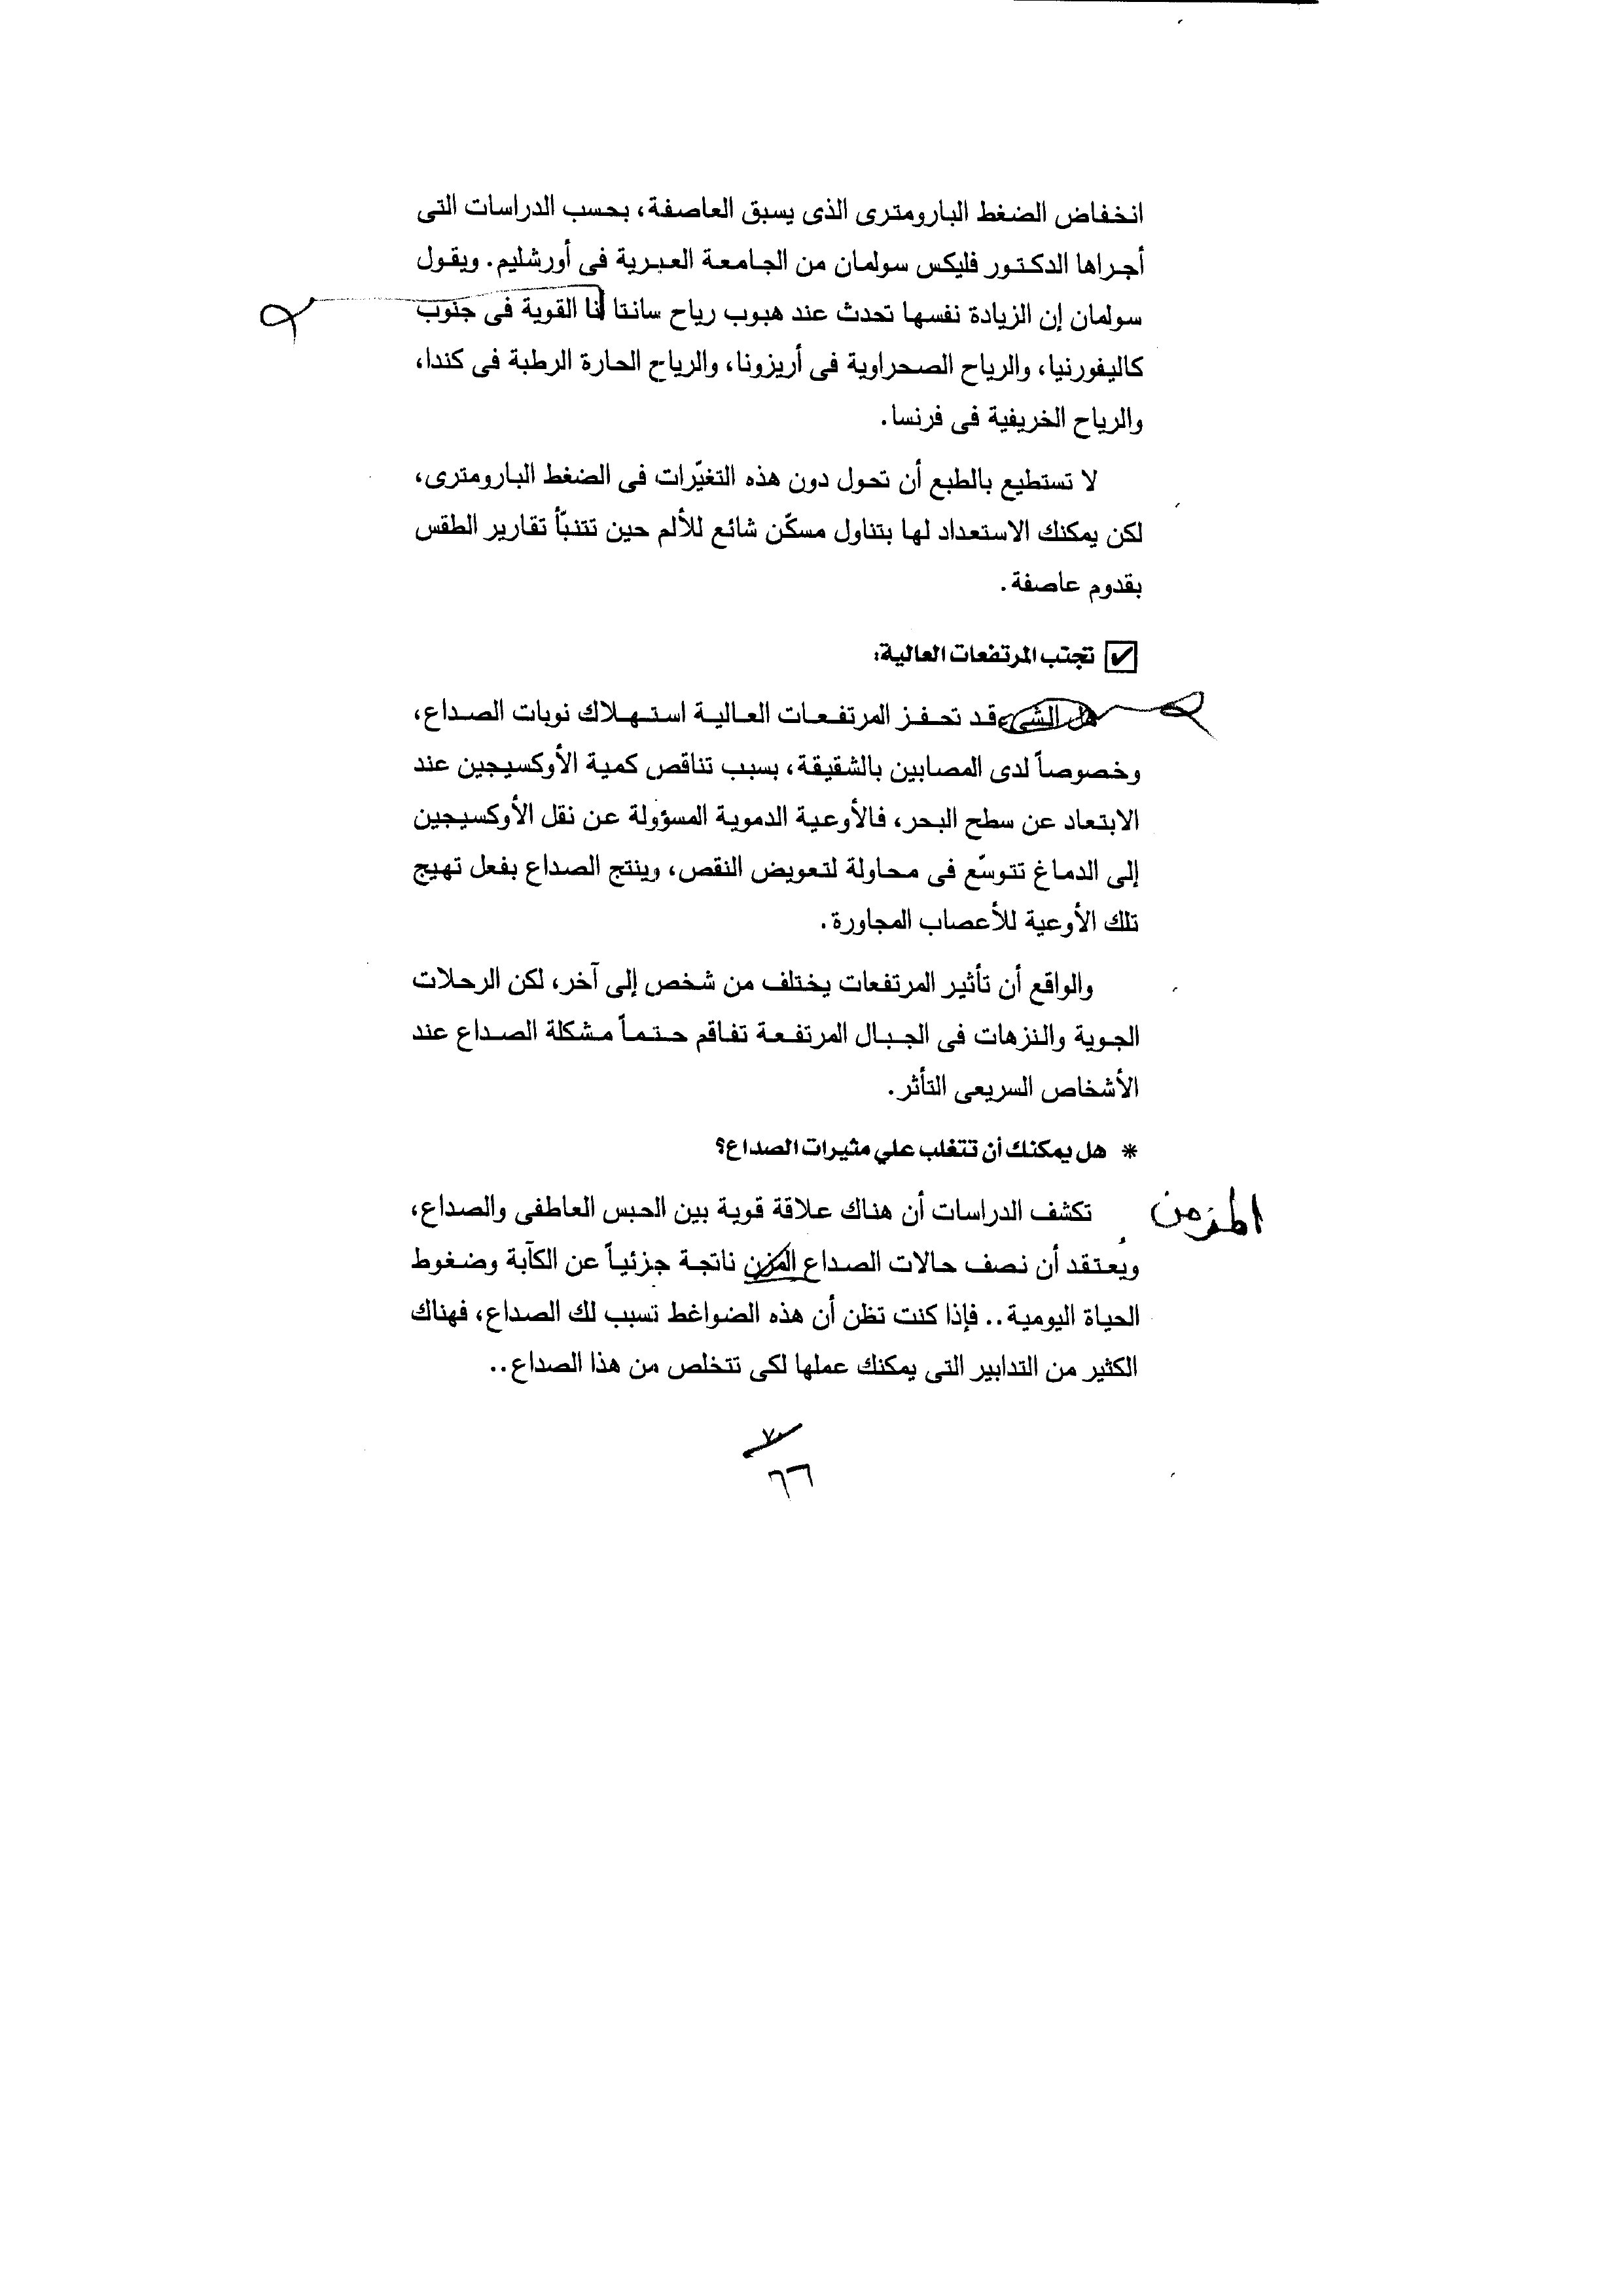 انخفاض الضغط البارومترى الذى يسبق العاصفة، بحسب الدراسات التى
أجراها الدكتور فليكس سولمان من الجامعة العبرية فى أورشليم. ويقول
سولمان إن الزيادة نفسها تحدث عند هبوب رياح سانتا نا القوية فى جنوب
كاليفورنيا، والرياح الصحراوية فى أريزونا، والرياح الحارة الرطبة فى كندا،
والرياح الخريفية فى فرنسا.
لا تستطيع بالطبع أن تحول دون هذه التغيّرات فى الضغط البارومترى،
لكن يمكنك الاستعداد لها بتناول مسكّن شائع للألم حين تتنبّأ تقارير الطقس
بقدوم عاصفة.
☑ تجنب المرتفعات العالية:
هل الشىء قد تحفز المرتفعات العالية استهلاك نوبات الصداع،
وخصوصاً لدى المصابين بالشقيقة، بسبب تناقص كمية الأوكسيجين عند
الابتعاد عن سطح البحر، فالأوعية الدموية المسؤولة عن نقل الأوكسيجين
إلى الدماغ تتوسّع فى محاولة لتعويض النقص، وينتج الصداع بفعل تهيج
تلك الأوعية للأعصاب المجاورة.
والواقع أن تأثير المرتفعات يختلف من شخص إلى آخر، لكن الرحلات
الجوية والنزهات فى الجبال المرتفعة تفاقم حتماً مشكلة الصداع عند
الأشخاص السريعى التأثر.
* هل يمكنك أن تتغلب علي مثيرات الصداع؟
تكشف الدراسات أن هناك علاقة قوية بين الحبس العاطفى والصداع،
المزمن
ويُعتقد أن نصف حالات الصداع المزن ناتجة جزئياً عن الكآبة وضغوط
الحياة اليومية.. فإذا كنت تظن أن هذه الضواغط تسبب لك الصداع، فهناك
الكثير من التدابير التى يمكنك عملها لكى تتخلص من هذا الصداع..
٦٦